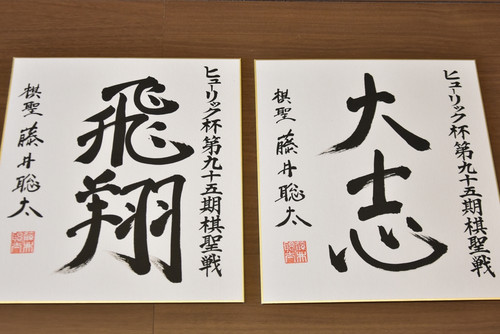 ヒューリック杯第九十五期棋聖戦
大志
棋聖 藤井聡太
ヒューリック杯第九十五期棋聖戦
飛翔
棋聖 藤井聡太